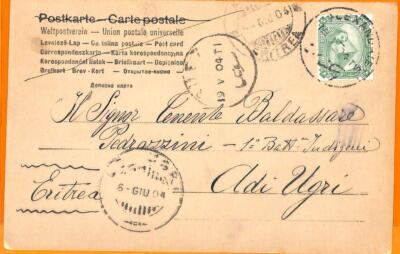 Postkarte - Carte postale
Weltpostverein - Union postale universelle
Levelező-Lap - Cartolina postale - Post card
Correspondenzkarte - Карта корреспонденція
Korespondenční lístek - Briefkaart
Brefkort - Brev-Kort - Открытое письмо
Дописна карта
ERITREA
19 V 04
Il Signor Tenente Baldassare
Pedrazzini - 1o Batt. Indigeni
Adi Ugri
Eritrea
UGRI
6-GIU 04